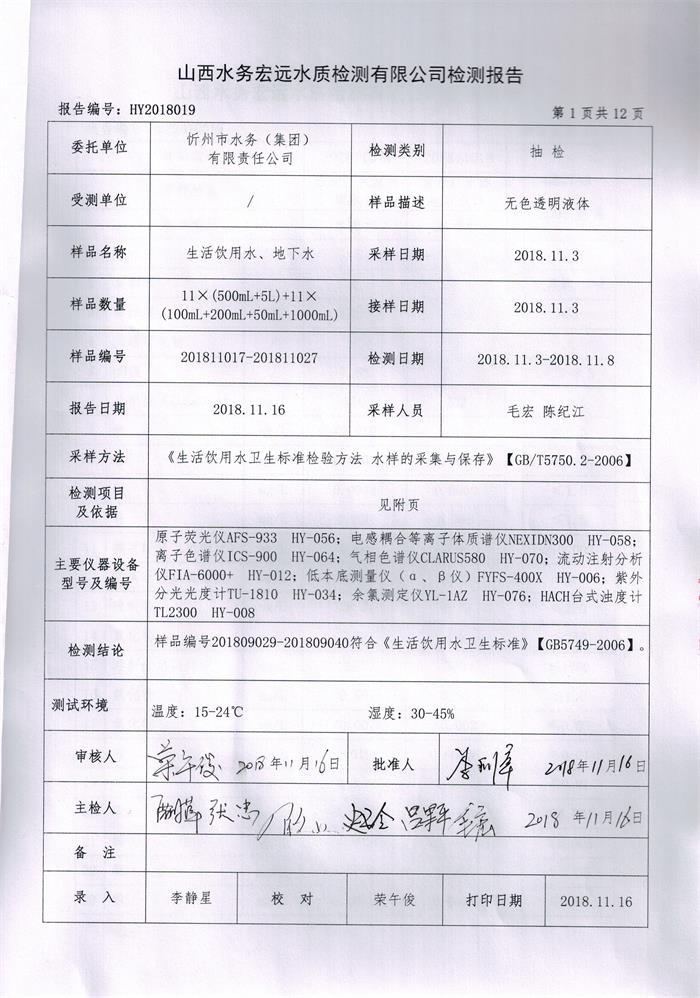 山西水务宏远水质检测有限公司检测报告
报告编号：HY2018019 第 1 页共 12 页
委托单位 忻州市水务（集团）有限责任公司 检测类别 抽 检
受测单位 / 样品描述 无色透明液体
样品名称 生活饮用水、地下水 采样日期 2018.11.3
样品数量 11×(500mL+5L)+11×(100mL+200mL+50mL+1000mL) 接样日期 2018.11.3
样品编号 201811017-201811027 检测日期 2018.11.3-2018.11.8
报告日期 2018.11.16 采样人员 毛宏 陈纪江
采样方法 《生活饮用水卫生标准检验方法 水样的采集与保存》【GB/T5750.2-2006】
检测项目及依据 见附页
主要仪器设备型号及编号
原子荧光仪AFS-933 HY-056；电感耦合等离子体质谱仪NEXIDN300 HY-058；
离子色谱仪ICS-900 HY-064；气相色谱仪CLARUS580 HY-070；流动注射分析
仪FIA-6000+ HY-012；低本底测量仪（α、β仪）FYFS-400X HY-006；紫外
分光光度计TU-1810 HY-034；余氯测定仪YL-1AZ HY-076；HACH台式浊度计
TL2300 HY-008
检测结论 样品编号201809029-201809040符合《生活饮用水卫生标准》【GB5749-2006】。
测试环境 温度：15-24℃ 湿度：30-45%
审核人 荣午俊 2018年11月16日 批准人 2018年11月16日
主检人 张忠 2018 年11月16日
备 注
录 入 李静星 校 对 荣午俊 打印日期 2018.11.16